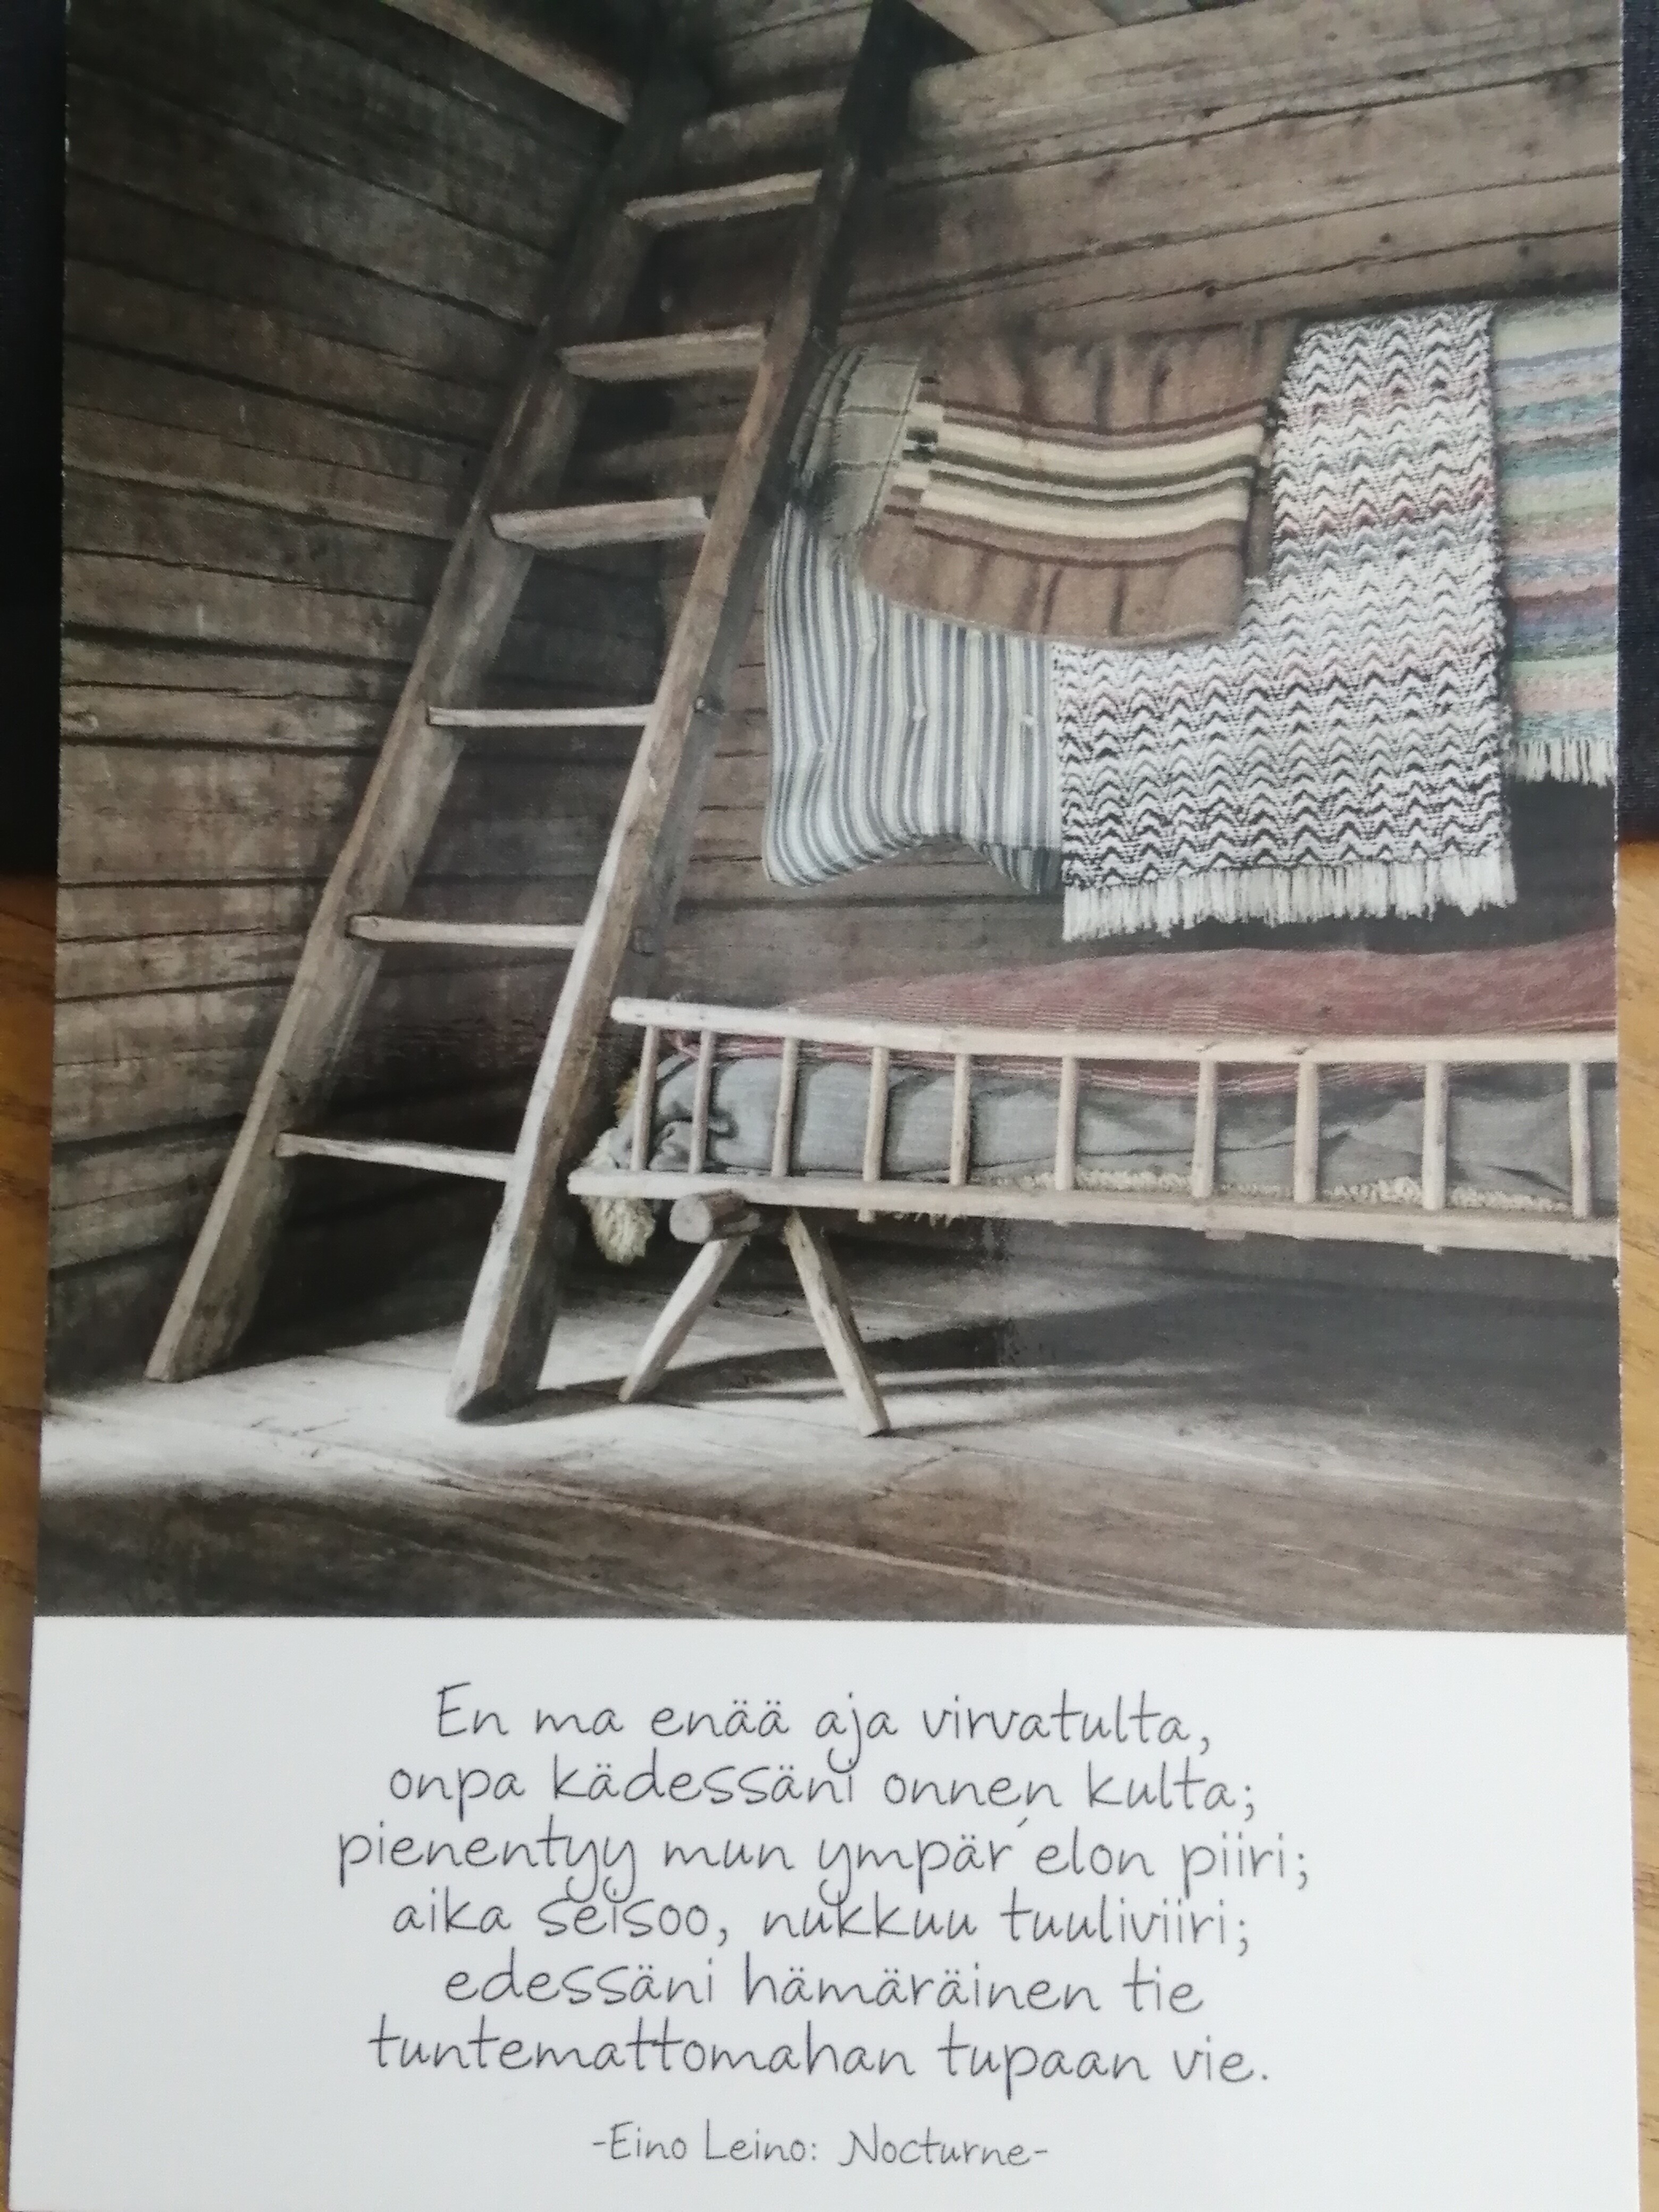 En ma enää aja virvatulta,
onpa kädessäni onnen kulta;
pienentyy mun ympär´elon piiri;
aika seisoo, nukkuu tuuliviiri;
edessäni hämäräinen tie
tuntemattomahan tupaan vie.
-Eino Leino: Nocturne-